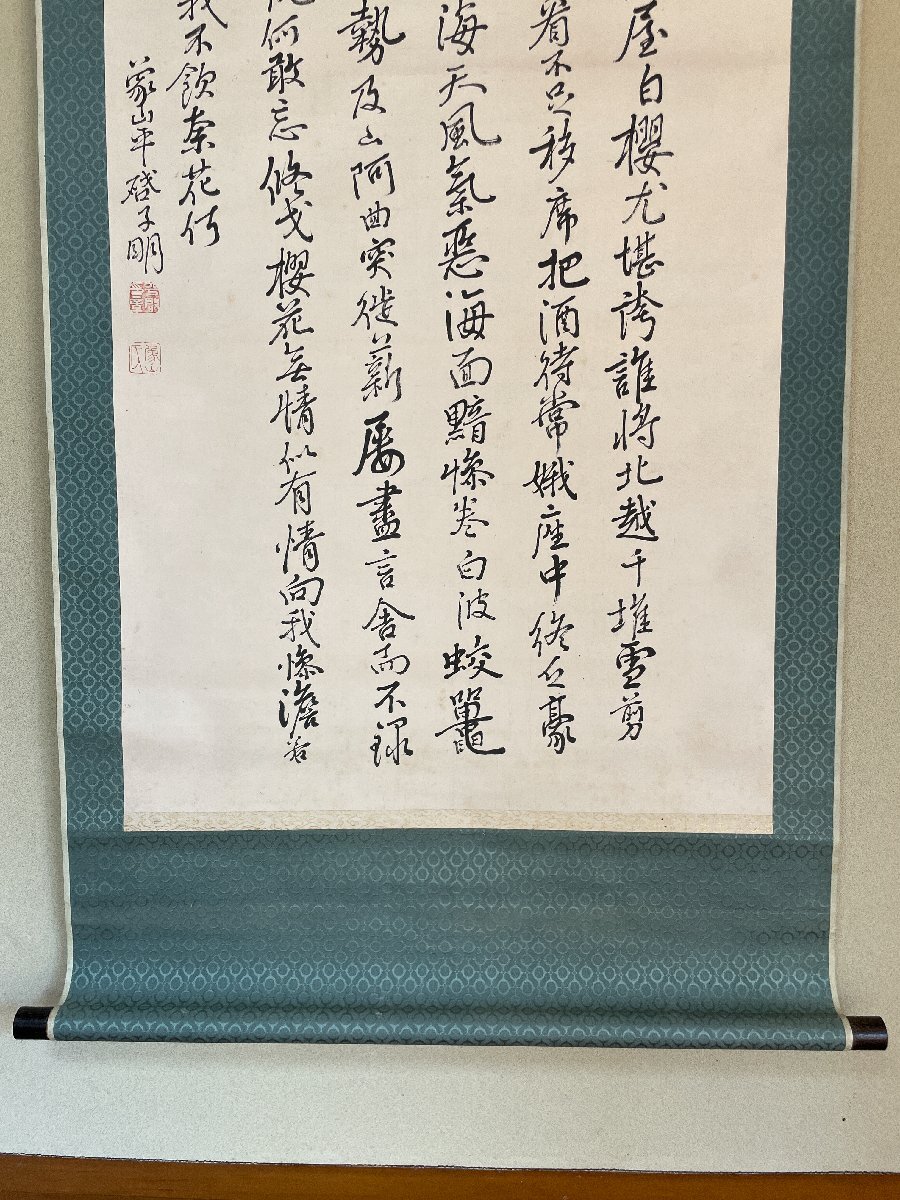 屋白櫻尤堪誇誰將北越千堆雪剪
看不只移席把酒待常娥座中終之豪
海天風氣惡海面黯慘卷白波蛟鼉
勢及山阿曲突徙薪屡盡言舍而不録
何敢忘修戈櫻花無情似有情向我慘澹若
我不飲奈花何
象山平啓子明